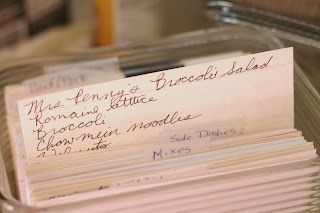 Beef/Pork
Mrs. Penny's Broccoli Salad
Romaine lettuce
Broccoli
Chow mein noodles
Side Dishes
Mixes